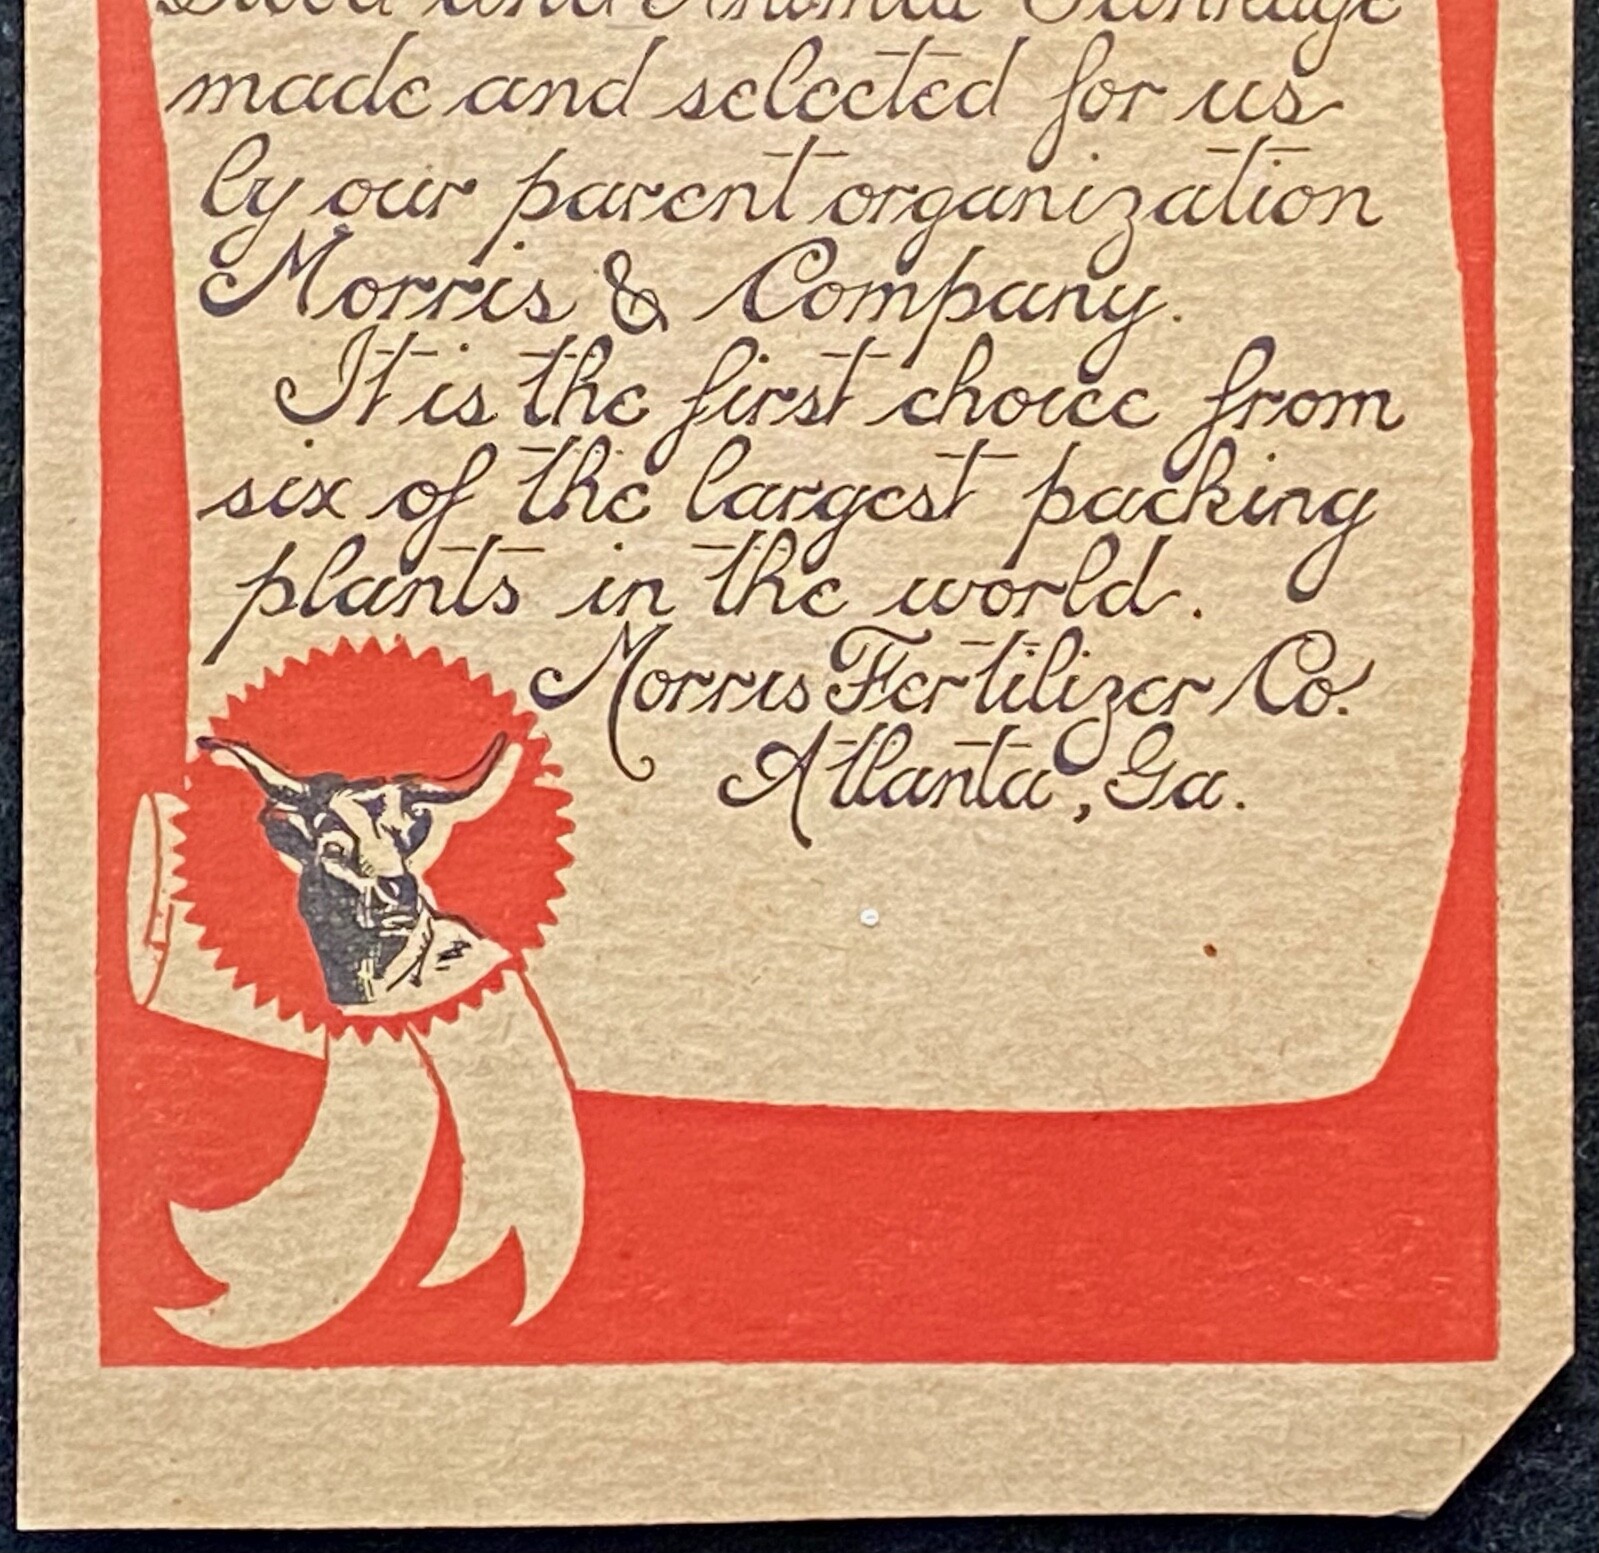 Blood and Animal Tankage
made and selected for us
by our parent organization
Morris & Company.
It is the first choice from
six of the largest packing
plants in the world.
Morris Fertilizer Co.
Atlanta, Ga.